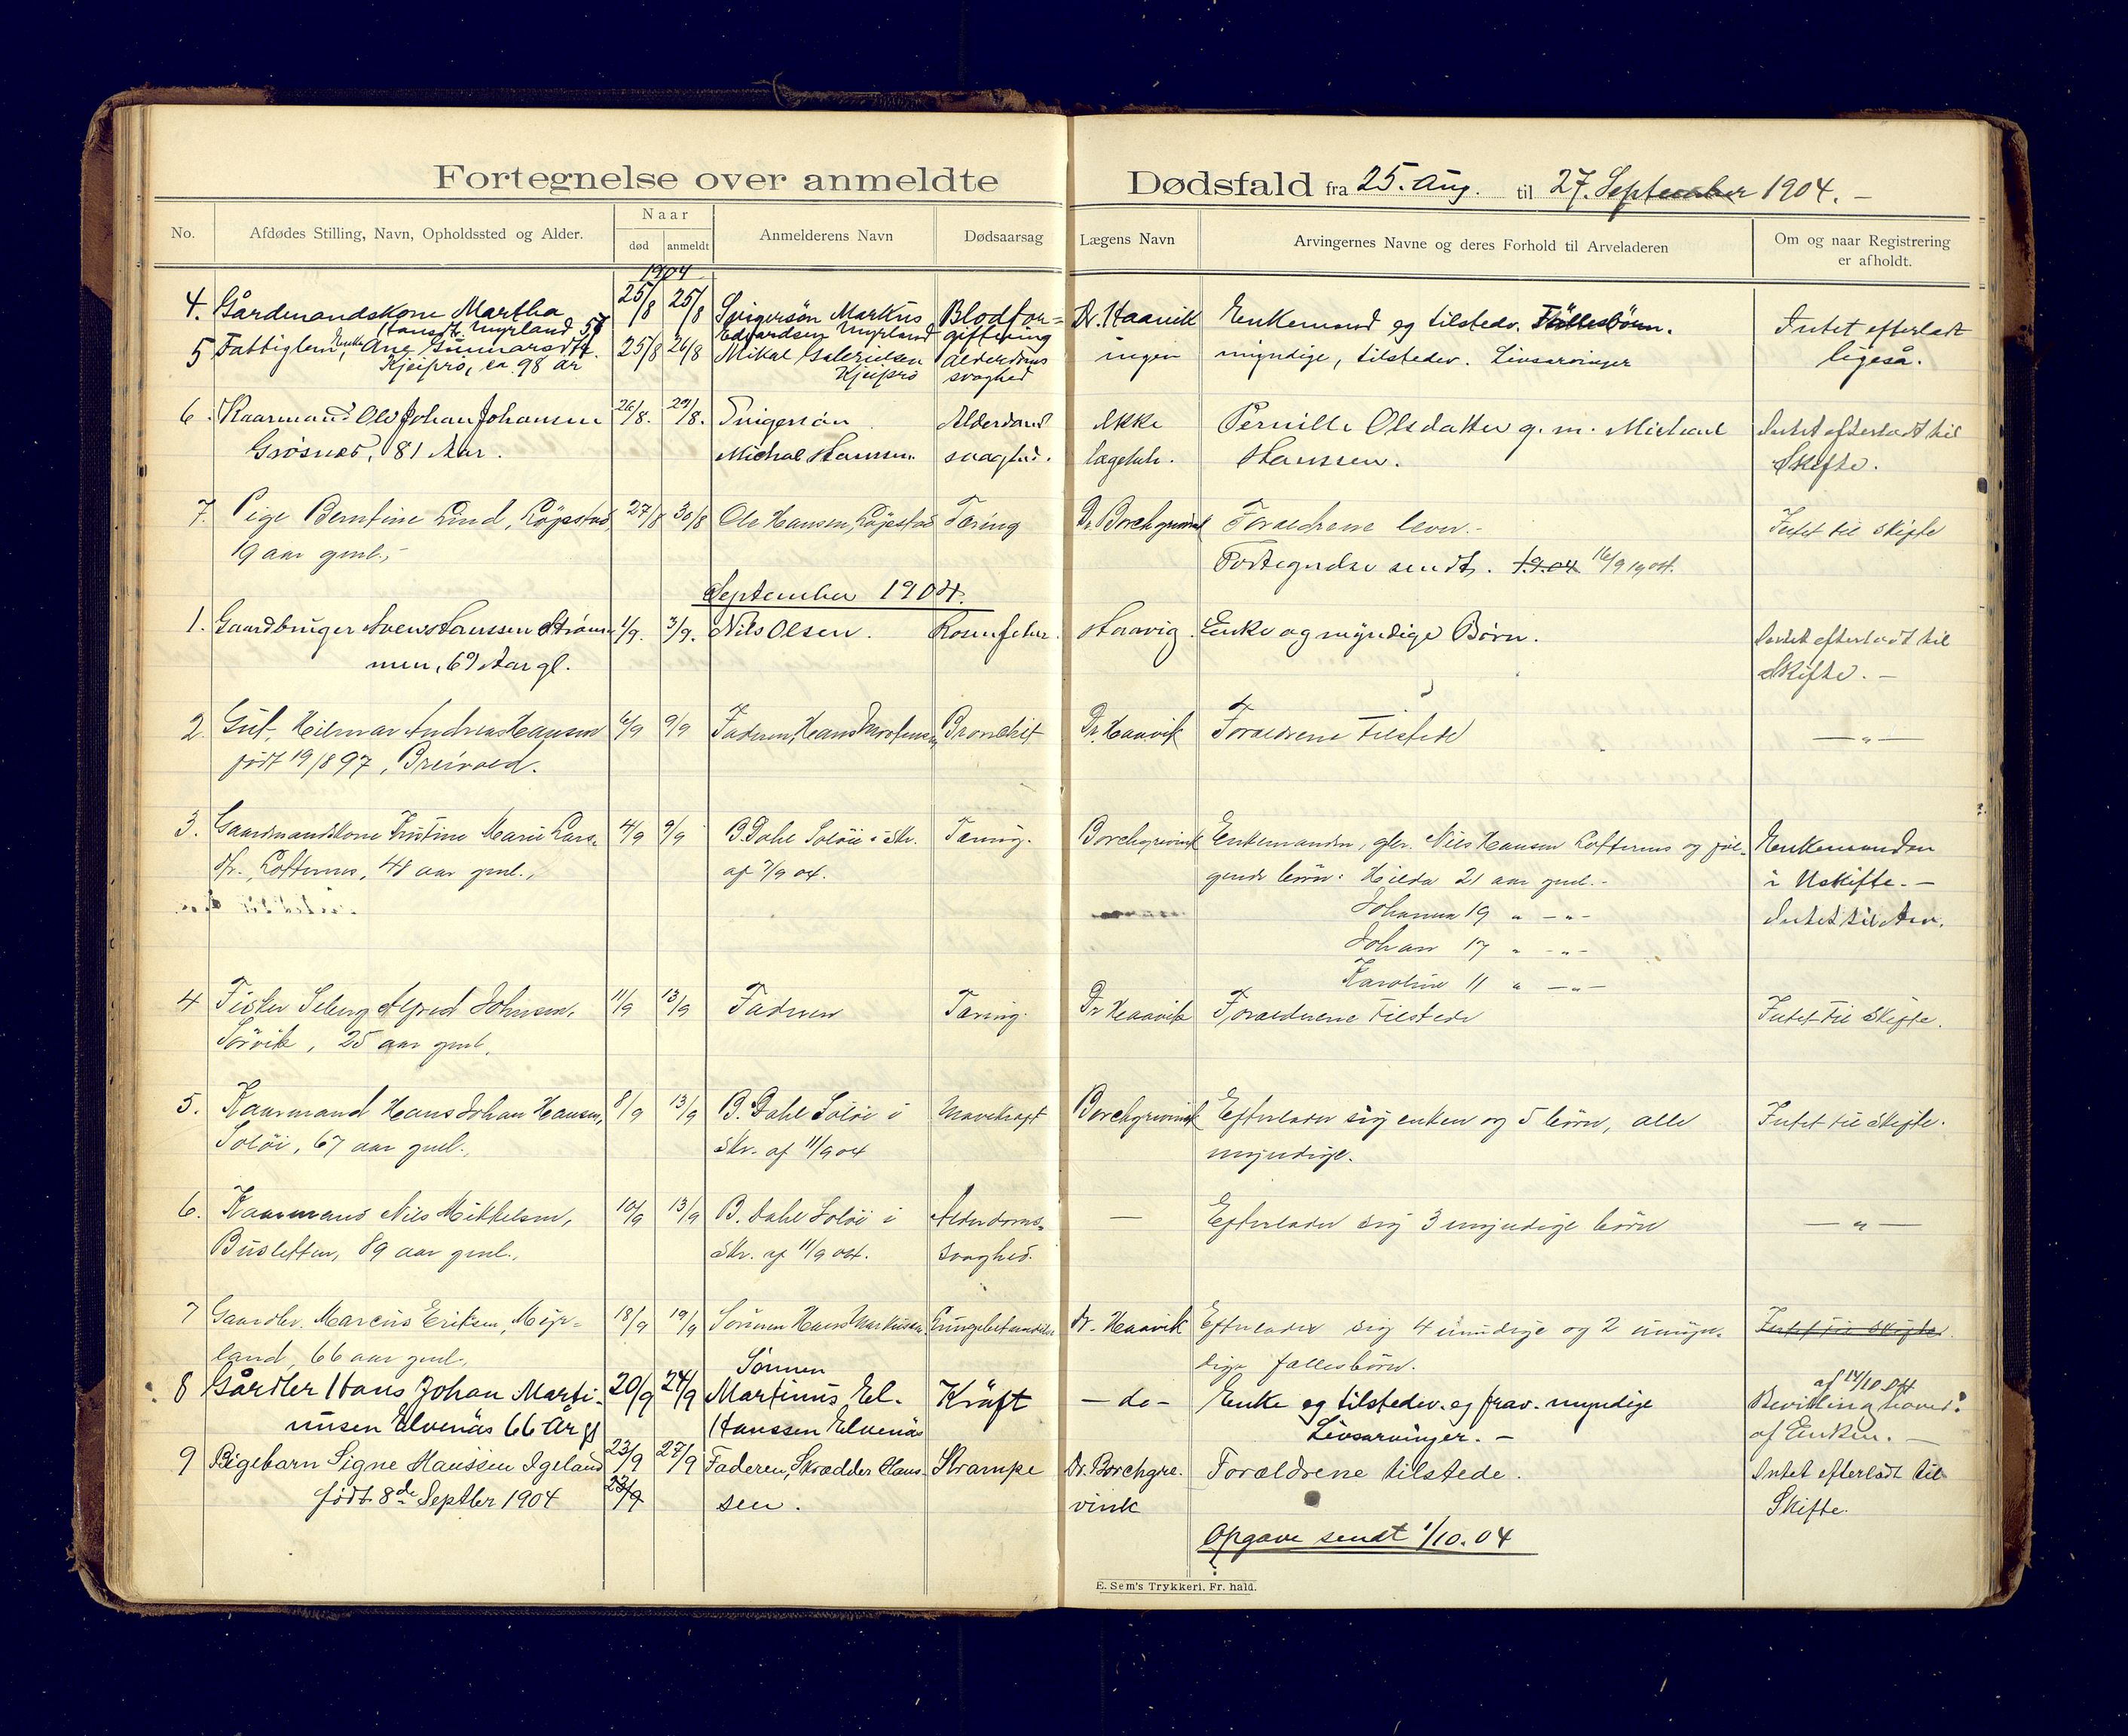 Fortegnelse over anmeldte Dødsfald fra 25. Aug. til 27. September 1904. –
No. Afdødes Stilling, Navn, Opholdssted og Alder. Naar død anmeldt Anmelderens Navn Dødsaarsag Lægens Navn Arvingernes Navne og deres Forhold til Arveladeren Om og naar Registrering er afholdt.
1904
4. Gårdmandskone Martha 25/8 25/8 Svigersøn Markus Blodfor- Dr. Haavik Enkemand og tilstedv. Fællesbørn. Intet efterladt
Hansdtr Myrland 57 Edvardsen Myrland giftning
5 Fattiglem, Enke Ane Gunnarsdtr. 25/8 26/8 Mikal Alderdoms ingen myndige, tilstedev. Livsarvinger ligeså.
Kjeipro, ca. 98 år Kjeipro svaghed
6. Kaarmand Ole Johan Johansen 26/8. 29/8. Svigersøn Alderdoms Ikke Pernille Olsdatter g. m. Michael Intet efterladt til
Grøsnes, 81 Aar. Michal Hanssen svaghed. lægetils. Hanssen. Skifte.
7. Pige Berntine Lind, Løpstad, 27/8 30/8 Ole Hansen, Løpstad Tæring Dr Borchgrevink Forældrene lever.- Intet til skifte
19 aar gml.,-
Fortegnelse sendt. 1.9.04 16/9 1904.
September 1904.
1. Gaardbruger Hanssen Strøm- 1/9. 3/9. Nils Olsen. Rosenfeber. Haavig. Enke og myndige Børn. Intet efterladt til
men, 69 Aar gl. Skifte. –
2. Gut, Hilmar Andreas Hansen 6/9 9/9 Faderen, Hans Bronchit Dr. Haavik Forældrene tilstede — " —
født 19/8 97, Breivold.
3. Gaardmandskone Kristine Marie Lars- 4/9 9/9 B. Dahl Soløi i Skr. Tæring. Borchgrevink Enkemanden, gbr. Nils Hansen Lofternes og føl- Enkemanden
dtr., Lofternes, 48 aar gml., af 7/9 04. gende børn: Hilda 21 aar gml.- i Uskifte. –
Johanna 19 " — " — Intet til Arv.
Johan 17 " — " —
Karoline 11 " — " —
4 Fisker Alfred Johnsen, 11/9 13/9 Faderen Tæring. Dr Haavik Forældrene tilstede Intet til skifte.
Sørvik, 25 aar gml.
5. Kaarmand Hans Johan Hansen, 8/9 13/9 B. Dahl Soløi i Mavekræft Borchgrevink Efterlader sig enken og 5 børn, alle Intet til skifte.
Soløi, 67 aar gml., Skr. af 11/9 04 myndige.
6. Kaarmand Nils Mikkelsen, 10/9 13/9 B. Dahl Soløi i Alderdoms- — Efterlader sig 3 myndige børn — " —
Busletten, 89 aar gml., Skr. af 11/9 04. svaghed.
7 Gaardbr. Marcus Eriksen, Myr- 18/9 19/9 Sønnen Hans Markussen Lungebetændelse dr. Haavik Efterlader sig 4 mundige og 2 umyn- Intet til skifte.
land, 66 aar gml., dige fællesbørn.
8 Gårdbr Hans Johan Marti- 20/9 24/9 Sønnen Martinus El. Kräft — do — Enke og tilstedev. og frav. myndige af 14/10 04 Bevilling
nusen Elvenäs 66 År gl Hanssen Elvenäs Livsarvinger. – af Enken. –
9 Pigebarn Signe Hanssen Igeland 23/9 27/9 Faderen, Skrædder Hans- Krampe Dr. Borchgre- Forældrene tilstede. Intet efterladt til
født 8de Septbr 1904 23/9 sen. vink Skifte.
Opgave sendt 1/10. 04
E. Sem's Trykkeri, Fr. hald.